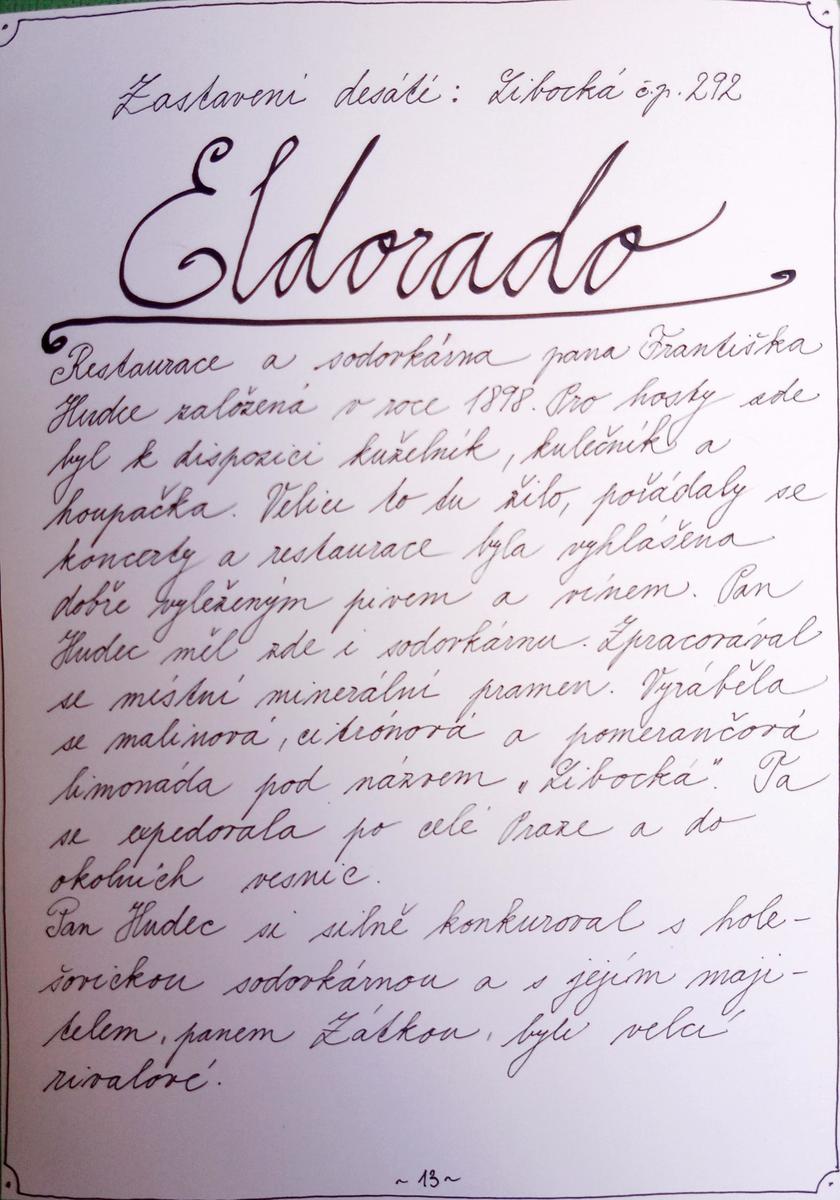 Zastavení desáté: Libocká č.p. 292
Eldorado
Restaurace a sodovkárna pana Františka
Hudce založená v roce 1898. Pro hosty zde
byl k dispozici kuželník, kulečník a
houpačka. Velice to tu žilo, pořádaly se
koncerty a restaurace byla vyhlášena
dobře vyleženým pivem a vínem. Pan
Hudec měl zde i sodovkárnu. Zpracovával
se místní minerální pramen. Vyráběla
se malinová, citrónová a pomerančová
limonáda pod názvem „Libocká". Ta
se expedovala po celé Praze a do
okolních vesnic.
Pan Hudec si silně konkuroval s hole-
šovickou sodovkárnou a s jejím maji-
telem, panem Zátkou, byli velcí
rivalové.
~ 13 ~